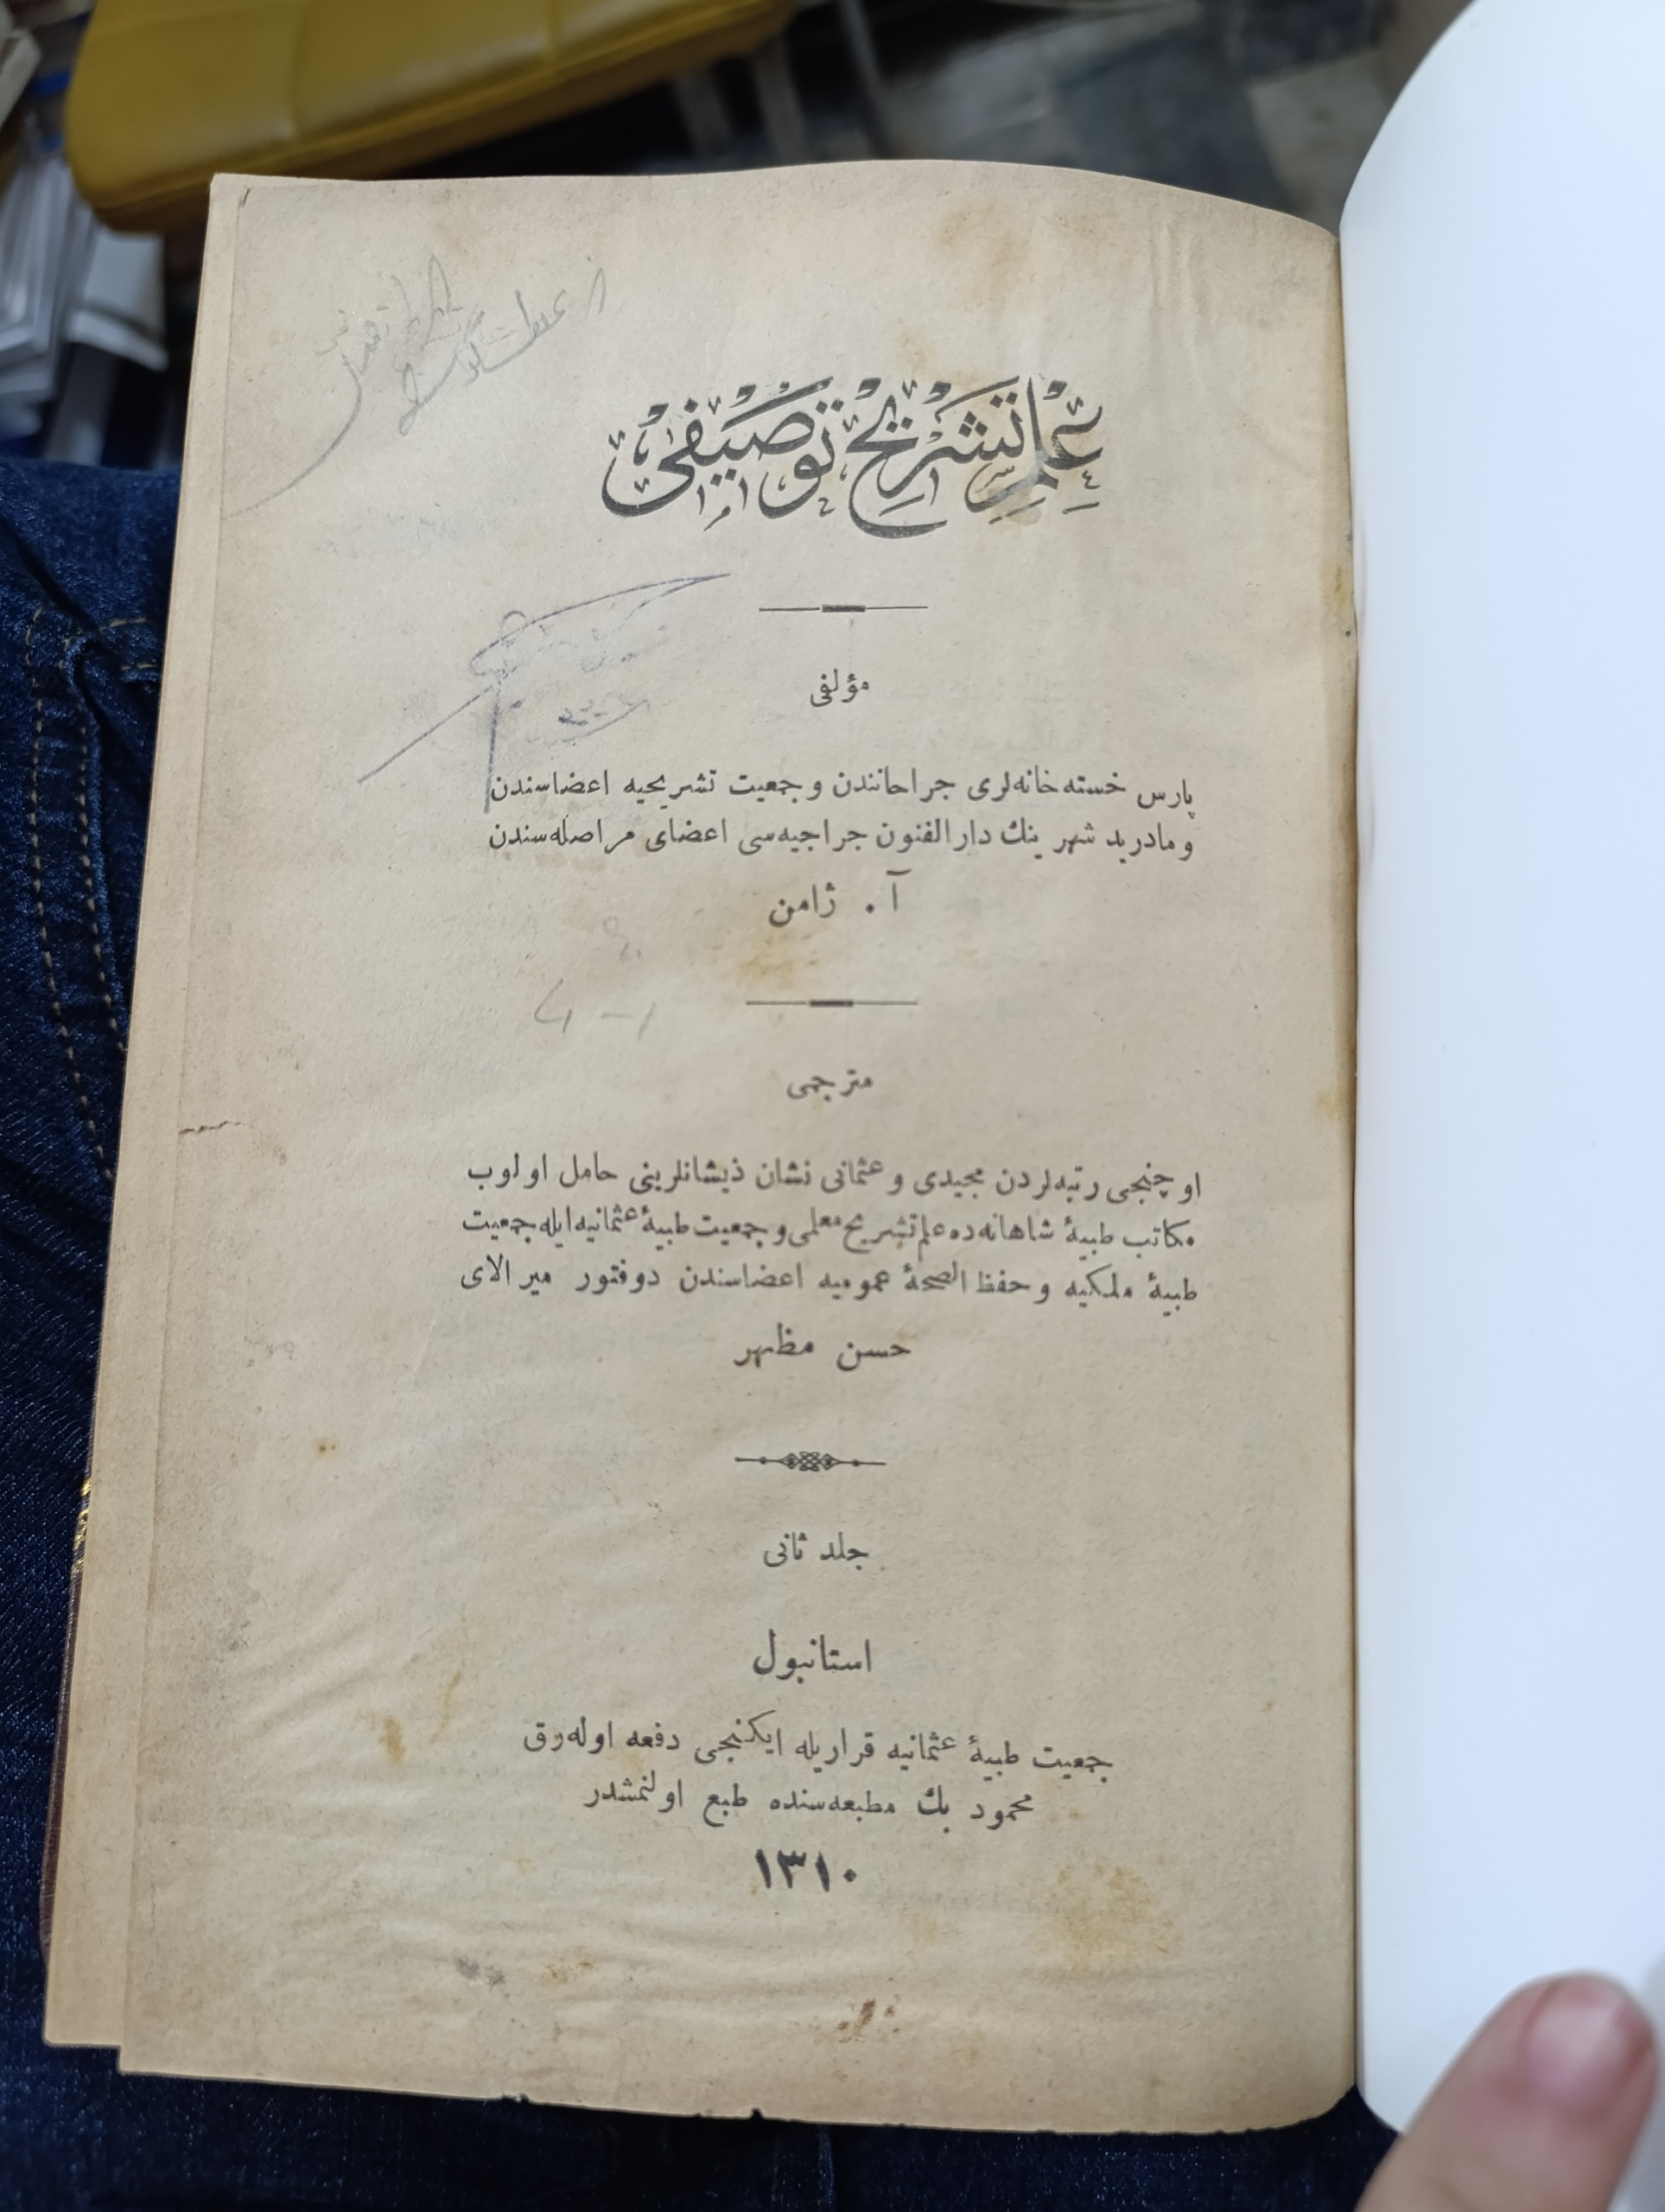 علم تشریح توصیفی
مؤلفی
پارس خسته‌خانه‌لری جراحانندن و جمعیت تشریحیه اعضاسندن
و مادرید شهرینك دارالفنون جراحیه‌سی اعضای مراصله‌سندن
آ . ژامن
مترجمی
اوچنجی رتبه‌لردن مجیدی و عثمانی نشان ذیشانلرینی حامل اولوب
مكاتب طبیهٔ شاهانه‌ده علم تشریح معلمی و جمعیت طبیهٔ عثمانیه ایله جمعیت
طبیهٔ ملكیه و حفظ الصحهٔ عمومیه اعضاسندن دوقتور میرالای
حسن مظهر
جلد ثانی
استانبول
جمعیت طبیهٔ عثمانیه قراریله ایكنجی دفعه اوله‌رق
محمود بك مطبعه‌سنده طبع اولنمشدر
١٣١٠